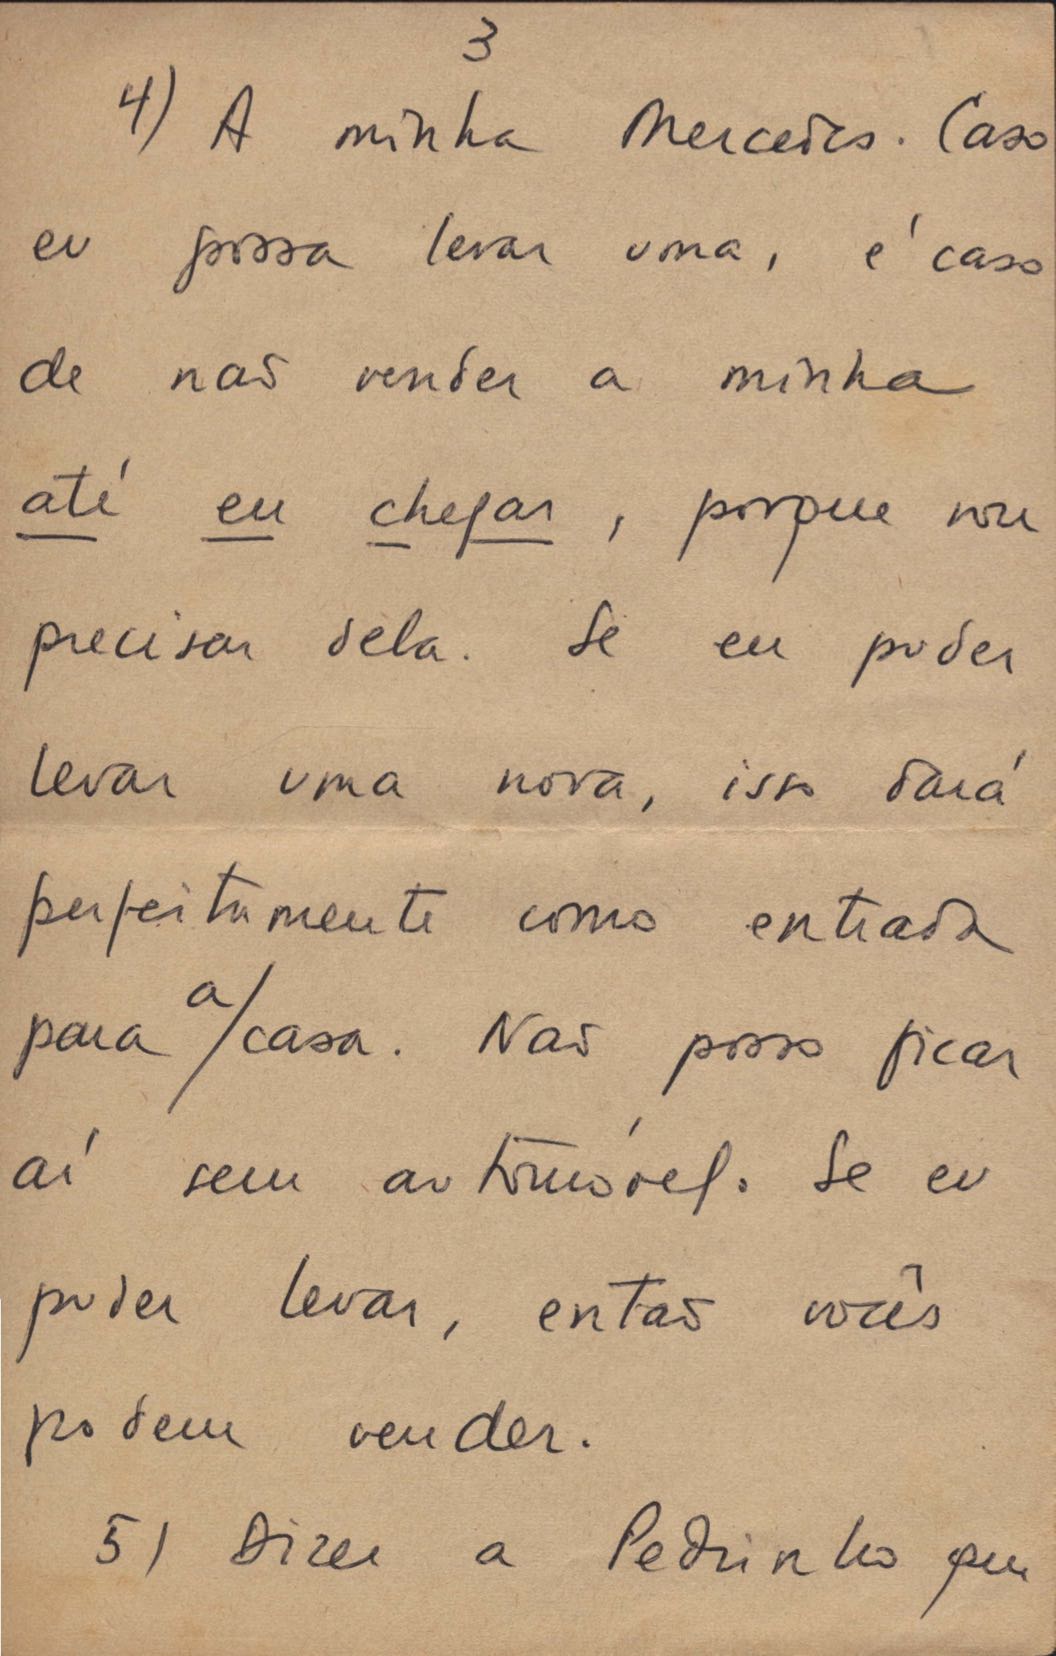 3
4) A minha Mercedes. Caso
eu possa levar uma, é caso
de não vender a minha
até eu chegar, porque vou
precisar dela. Se eu puder
levar uma nova, isso dará
perfeitamente como entrada
para a/casa. Não posso ficar
aí sem automóvel. Se eu
puder levar, então vocês
podem vender.
5) Dizer a Pedrinho que